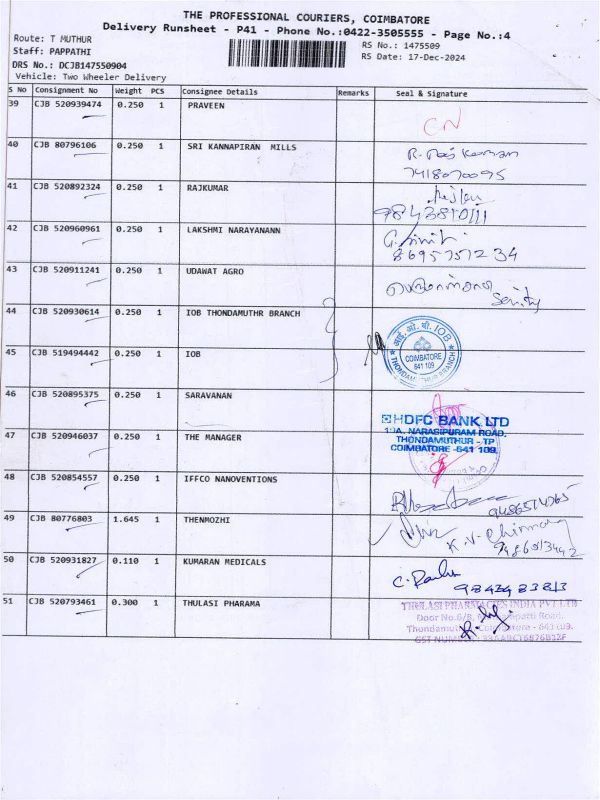 THE PROFESSIONAL COURIERS, COIMBATORE
Delivery Runsheet - P41 - Phone No.:0422-3505555 - Page No.:4
Route: T MUTHUR
RS No.: 1475509
Staff: PAPPATHI
RS Date: 17-Dec-2024
DRS No.: DCJB147550904
Vehicle: Two Wheeler Delivery
S No Consignment No Weight PCS Consignee Details Remarks Seal & Signature
39 CJB 520939474 0.250 1 PRAVEEN CN
40 CJB 80796106 0.250 1 SRI KANNAPIRAN MILLS
7418070095
41 CJB 520892324 0.250 1 RAJKUMAR
42 CJB 520960961 0.250 1 LAKSHMI NARAYANANN
8695751234
43 CJB 520911241 0.250 1 UDAWAT AGRO
44 CJB 520930614 0.250 1 IOB THONDAMUTHR BRANCH
आई. ओ. बी. IOB
COIMBATORE
641 109
THONDAMUTHUR BRANCH
45 CJB 519494442 0.250 1 IOB
46 CJB 520895375 0.250 1 SARAVANAN
HDFC BANK LTD
19A, NARASIPURAM ROAD,
THONDAMUTHUR - TP
COIMBATORE -641 109.
47 CJB 520946037 0.250 1 THE MANAGER
48 CJB 520854557 0.250 1 IFFCO NANOVENTIONS
49 CJB 80776803 1.645 1 THENMOZHI
50 CJB 520931827 0.110 1 KUMARAN MEDICALS
51 CJB 520793461 0.300 1 THULASI PHARAMA
THULASI PHARMACIES INDIA PVT LTD
Door No.6/8,